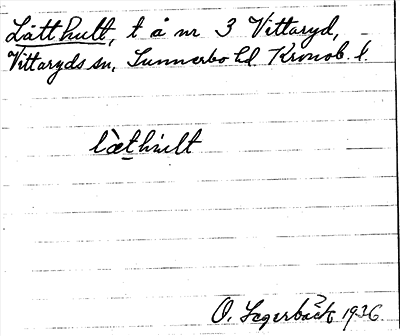 Låtthult, t å nr 3 Vittaryd,
Vittaryds sn, Sunnerbo hd. Kronob. l.
O. Lagerbäck 1936